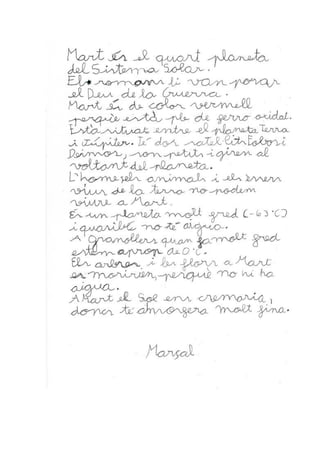 Mart és el quart planeta
del Sistema Solar.
Els romans li van posar
el Deu de la Guerra.
Mart és de color vermell
perquè està ple de ferro oxidat.
Està situat entre el planeta Terra
i Júpiter. Té dos satèl·lits Fobos i
Deimos, son petits i giren al
voltant del planeta.
L'home, els animals i els éssers
vius de la terra no podem
viure a Mart.
Es un planeta molt fred (-63ºC)
i quasibé no té aigua.
A Granollers quan fa molt fred
estem aprop de 0ºC.
Els arbres i les flors a Mart
es moririen, perquè no hi ha
aigua.
A Mart el Sol ens cremaria,
doncs té atmosfera molt fina.
Marçal